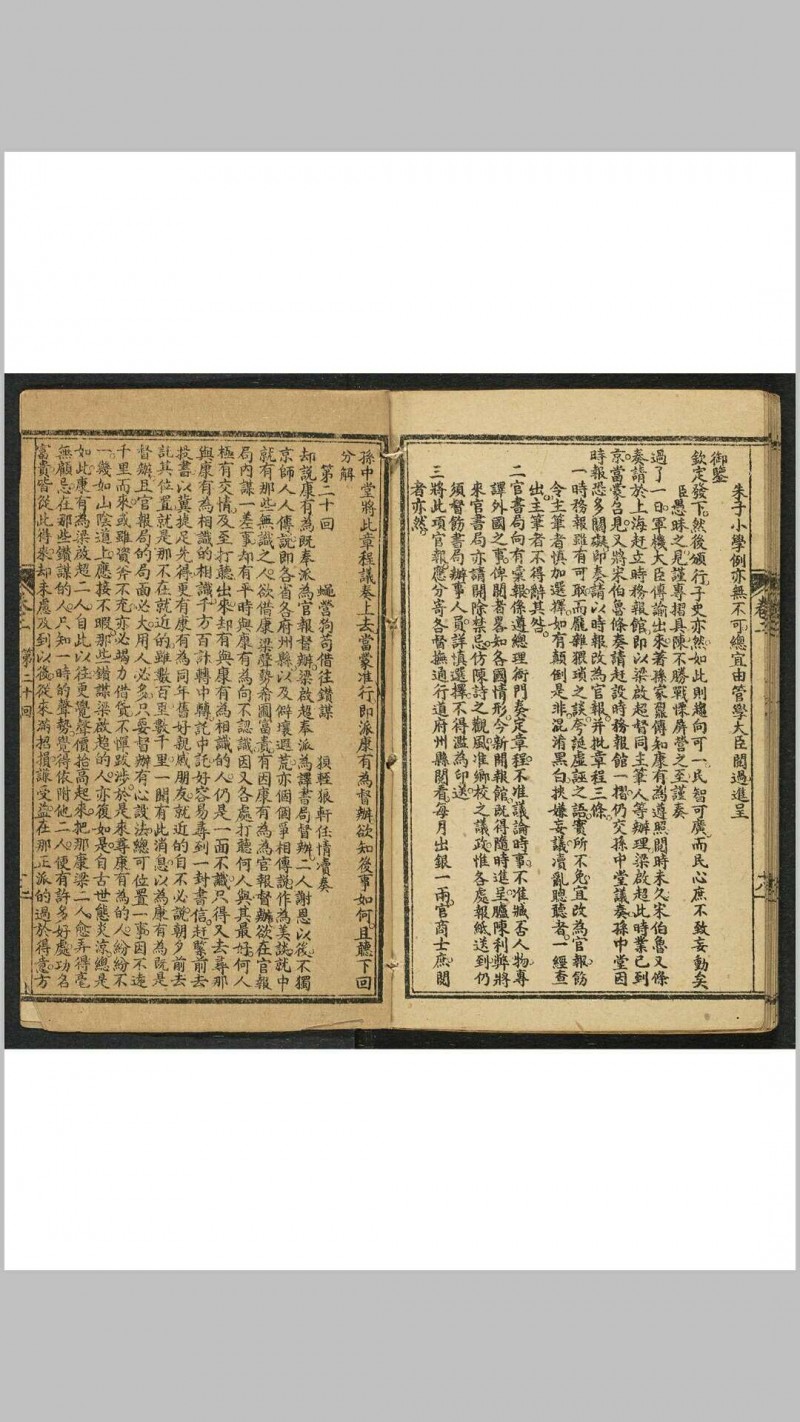 朱子小學例亦無不可總宜由管學大臣閱過進呈
御鑒
欽定發下然後頒行子史亦然如此則趨向可一民智可廣而民心庶不致妄動矣
臣愚昧之見謹專摺具陳不勝戰慄屏營之至謹奏
過了一日軍機大臣傳諭出來著孫家鼐傳知康有為遵照閱時未久宋伯魯又條
奏請於上海赶立時務報館即以梁啟超督同主筆人等辦理梁啟超此時業已到
京當蒙召見又將宋伯魯條奏請赶設時務報館一摺仍交孫中堂議奏孫中堂因
時報恐多關礙即奏請以時報改為官報并批章程三條
一時務報雖有可取而龐雜猥瑣之談夸誕虛誣之語實所不免宜改為官報飭
令主筆者慎加選擇如有顛倒是非混淆黑白挾嫌妄議瀆亂聰聽者一經查
出主筆者不得辭其咎
二官書局向有彙報係遵總理衙門奏定章程不准議論時事不准臧否人物專
譯外國之事俾閱者畧知各國情形今新開報館既得隨時進呈臚陳利弊將
來官書局亦請開除禁忌仿陳詩之觀風准鄉校之議政惟各處報紙送到仍
須督飭書局辦事人員詳慎選擇不得濫為印送
三將此項官報應分寄各督撫通行道府州縣閱看每月出銀一兩官商士庶閱
者亦然
卷二
孫中堂將此章程議奏上去當蒙准行即派康有為督辦欲知後事如何且聽下回
分解
第二十回 蠅營狗苟借往鑽謀 損輊狼軒任情瀆奏
却說康有為既奉派為官報督辦梁啟超奉派為譯書局督辦二人謝恩以後不獨
京師人人傳說即各省各府州縣以及僻壤遐荒亦個個爭相傳說作為美談就中
就有那些無識之人欲借康梁聲勢希圖富貴有因康有為為官報督辦欲在官報
局內謀一差事却有平時與康有為向不認識因又各處打聽何人與其最好何人
極有交情及至打聽出來却有與康有為相識的人仍是一面不識只得又去尋那
與康有為相識的相識千方百計轉中轉託中託好容易尋到一封書信赶緊前去
投書以冀捷足先得更有康有為同年舊好親戚朋友就近的自不必說朝夕前去
託其位置就是那不在就近的雖數百至數千里一聞有此消息以為康有為既是
督辦且官報局的局面必大用人必多只要督辦有心設法總可位置一事因不遠
千里而來或雖資斧不充亦必竭力借貸不憚跋涉於是來尋康有為的人紛紛不
一幾如山陰道上應接不暇那些鑽謀梁啟超的人亦復如是自古世態炎涼總是
如此康有為梁啟超二人自此以往更覺聲價抬高起來把那康梁二人愈弄得毫
無顧忌在那些鑽謀的人只知一時的聲勢覺得依附他二人便有許多好處功名
富貴皆從此得來却未慮及到以後從來滿招損謙受益在那正派的過於得意方
第二十回